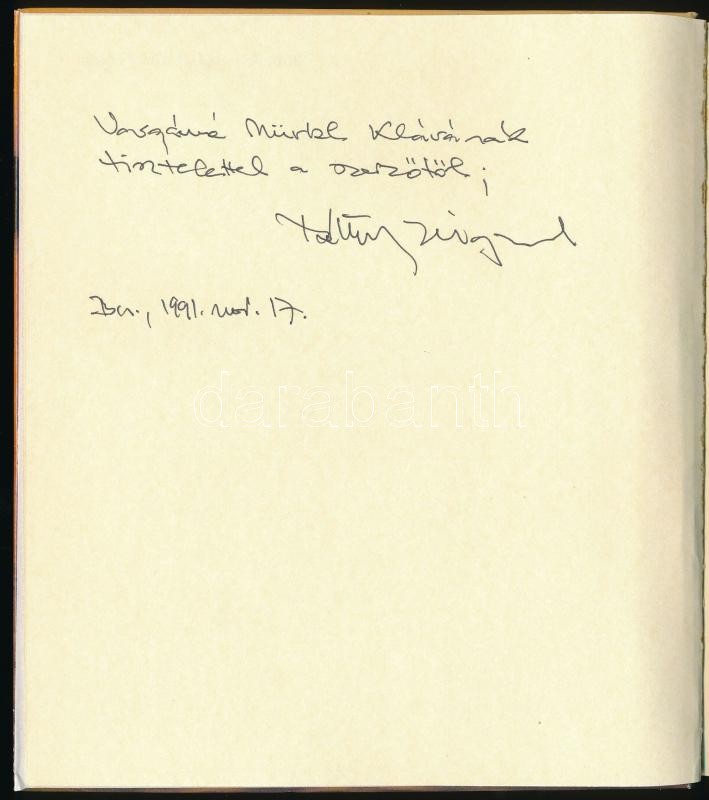 Vargáné Mürkl Klárának
tisztelettel a szerzőtől;
Tóth Zsigmond
Bp., 1991. nov. 17.
darabanth